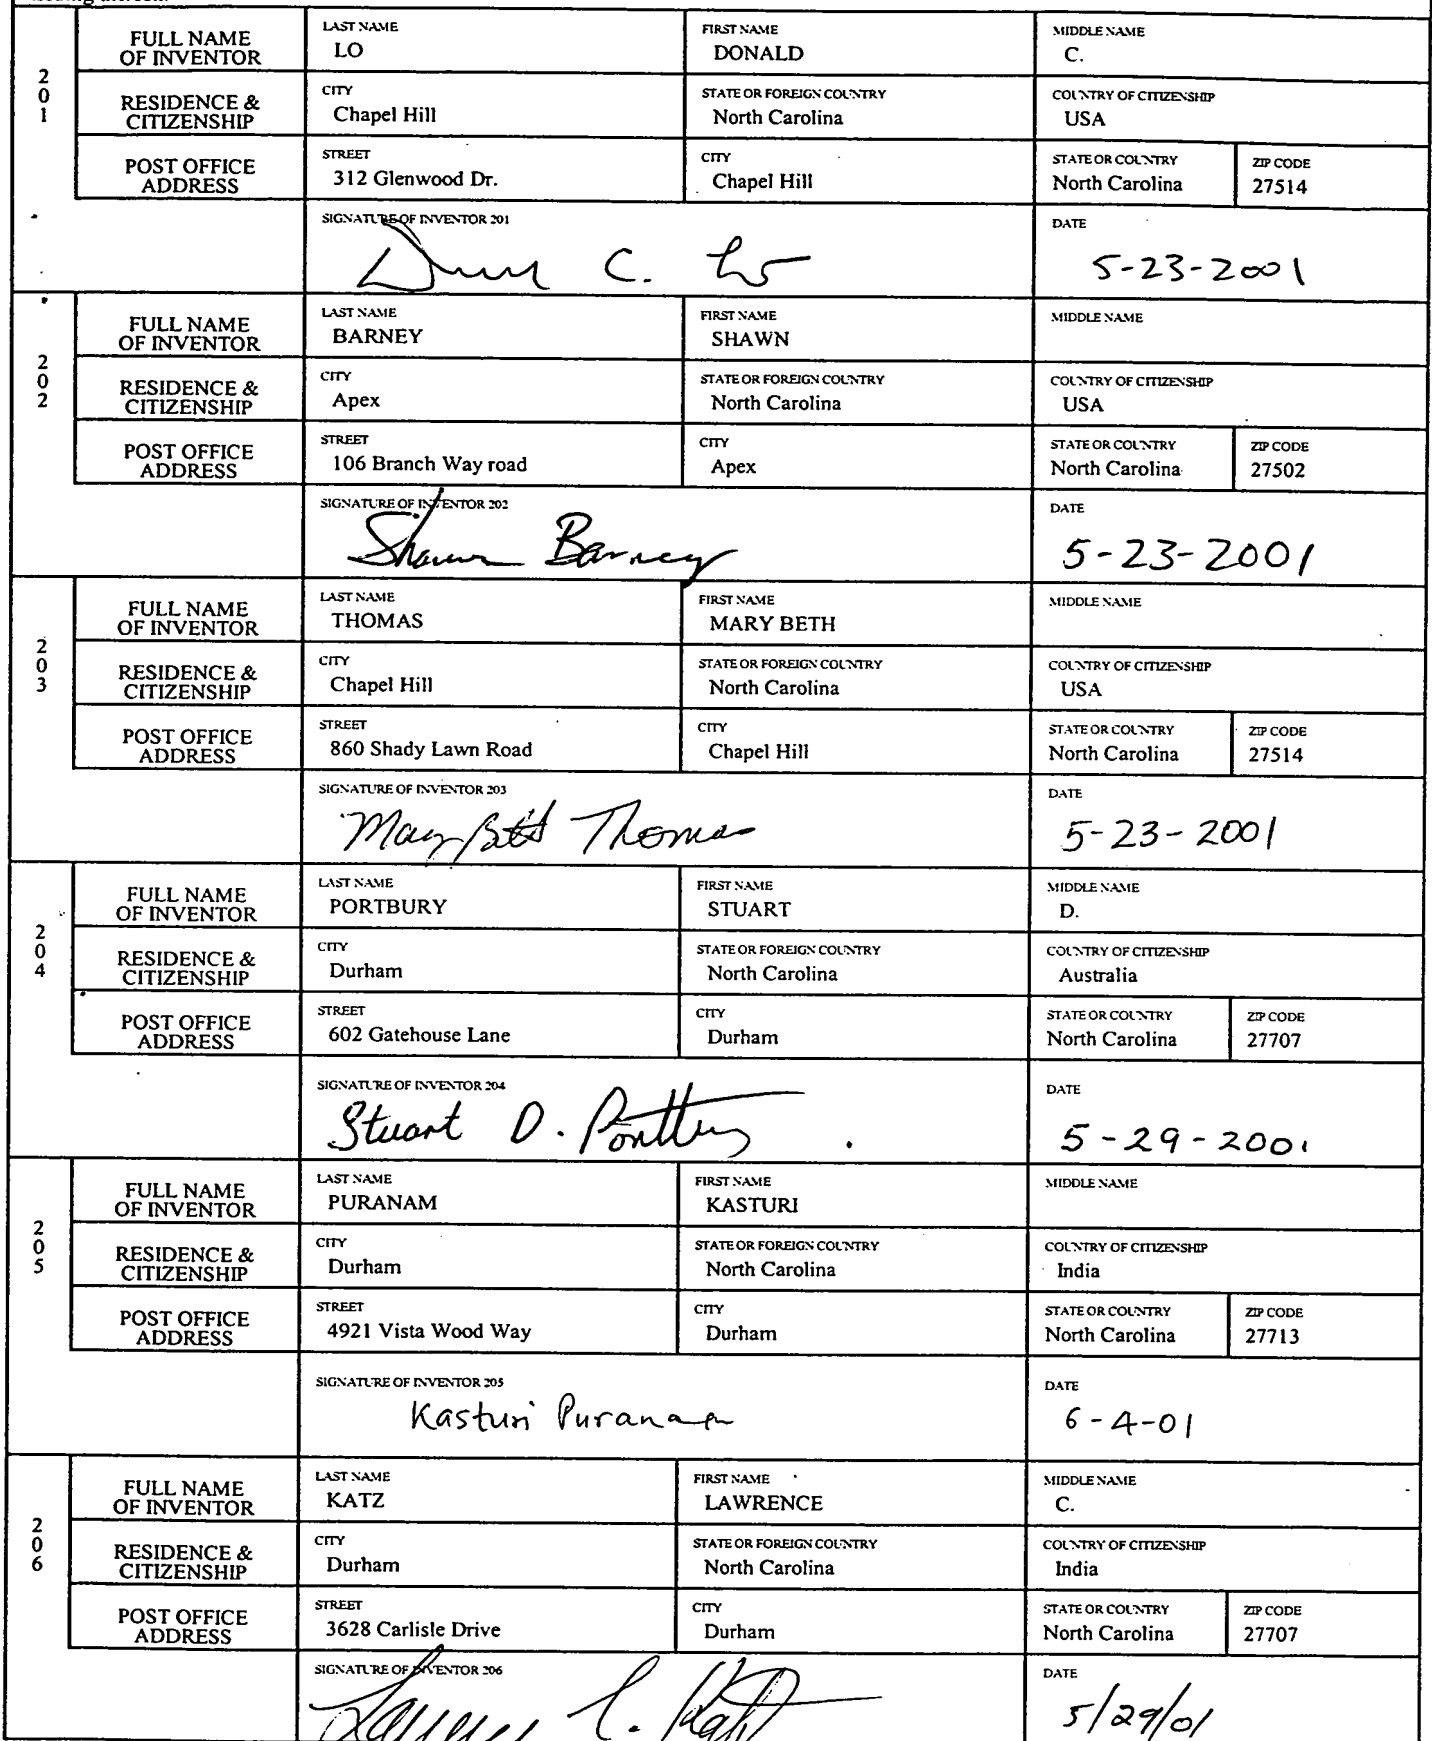 201
FULL NAME OF INVENTOR LAST NAME LO FIRST NAME DONALD MIDDLE NAME C.
RESIDENCE & CITIZENSHIP CITY Chapel Hill STATE OR FOREIGN COUNTRY North Carolina COUNTRY OF CITIZENSHIP USA
POST OFFICE ADDRESS STREET 312 Glenwood Dr. CITY Chapel Hill STATE OR COUNTRY North Carolina ZIP CODE 27514
SIGNATURE OF INVENTOR 201 C. Lo DATE 5-23-2001
202
FULL NAME OF INVENTOR LAST NAME BARNEY FIRST NAME SHAWN MIDDLE NAME
RESIDENCE & CITIZENSHIP CITY Apex STATE OR FOREIGN COUNTRY North Carolina COUNTRY OF CITIZENSHIP USA
POST OFFICE ADDRESS STREET 106 Branch Way road CITY Apex STATE OR COUNTRY North Carolina ZIP CODE 27502
SIGNATURE OF INVENTOR 202 Shawn Barney DATE 5-23-2001
203
FULL NAME OF INVENTOR LAST NAME THOMAS FIRST NAME MARY BETH MIDDLE NAME
RESIDENCE & CITIZENSHIP CITY Chapel Hill STATE OR FOREIGN COUNTRY North Carolina COUNTRY OF CITIZENSHIP USA
POST OFFICE ADDRESS STREET 860 Shady Lawn Road CITY Chapel Hill STATE OR COUNTRY North Carolina ZIP CODE 27514
SIGNATURE OF INVENTOR 203 Mary Beth Thomas DATE 5-23-2001
204
FULL NAME OF INVENTOR LAST NAME PORTBURY FIRST NAME STUART MIDDLE NAME D.
RESIDENCE & CITIZENSHIP CITY Durham STATE OR FOREIGN COUNTRY North Carolina COUNTRY OF CITIZENSHIP Australia
POST OFFICE ADDRESS STREET 602 Gatehouse Lane CITY Durham STATE OR COUNTRY North Carolina ZIP CODE 27707
SIGNATURE OF INVENTOR 204 Stuart D. Portbury DATE 5-29-2001
205
FULL NAME OF INVENTOR LAST NAME PURANAM FIRST NAME KASTURI MIDDLE NAME
RESIDENCE & CITIZENSHIP CITY Durham STATE OR FOREIGN COUNTRY North Carolina COUNTRY OF CITIZENSHIP India
POST OFFICE ADDRESS STREET 4921 Vista Wood Way CITY Durham STATE OR COUNTRY North Carolina ZIP CODE 27713
SIGNATURE OF INVENTOR 205 Kasturi Puranam DATE 6-4-01
206
FULL NAME OF INVENTOR LAST NAME KATZ FIRST NAME LAWRENCE MIDDLE NAME C.
RESIDENCE & CITIZENSHIP CITY Durham STATE OR FOREIGN COUNTRY North Carolina COUNTRY OF CITIZENSHIP India
POST OFFICE ADDRESS STREET 3628 Carlisle Drive CITY Durham STATE OR COUNTRY North Carolina ZIP CODE 27707
SIGNATURE OF INVENTOR 206 C. Katz DATE 5/29/01